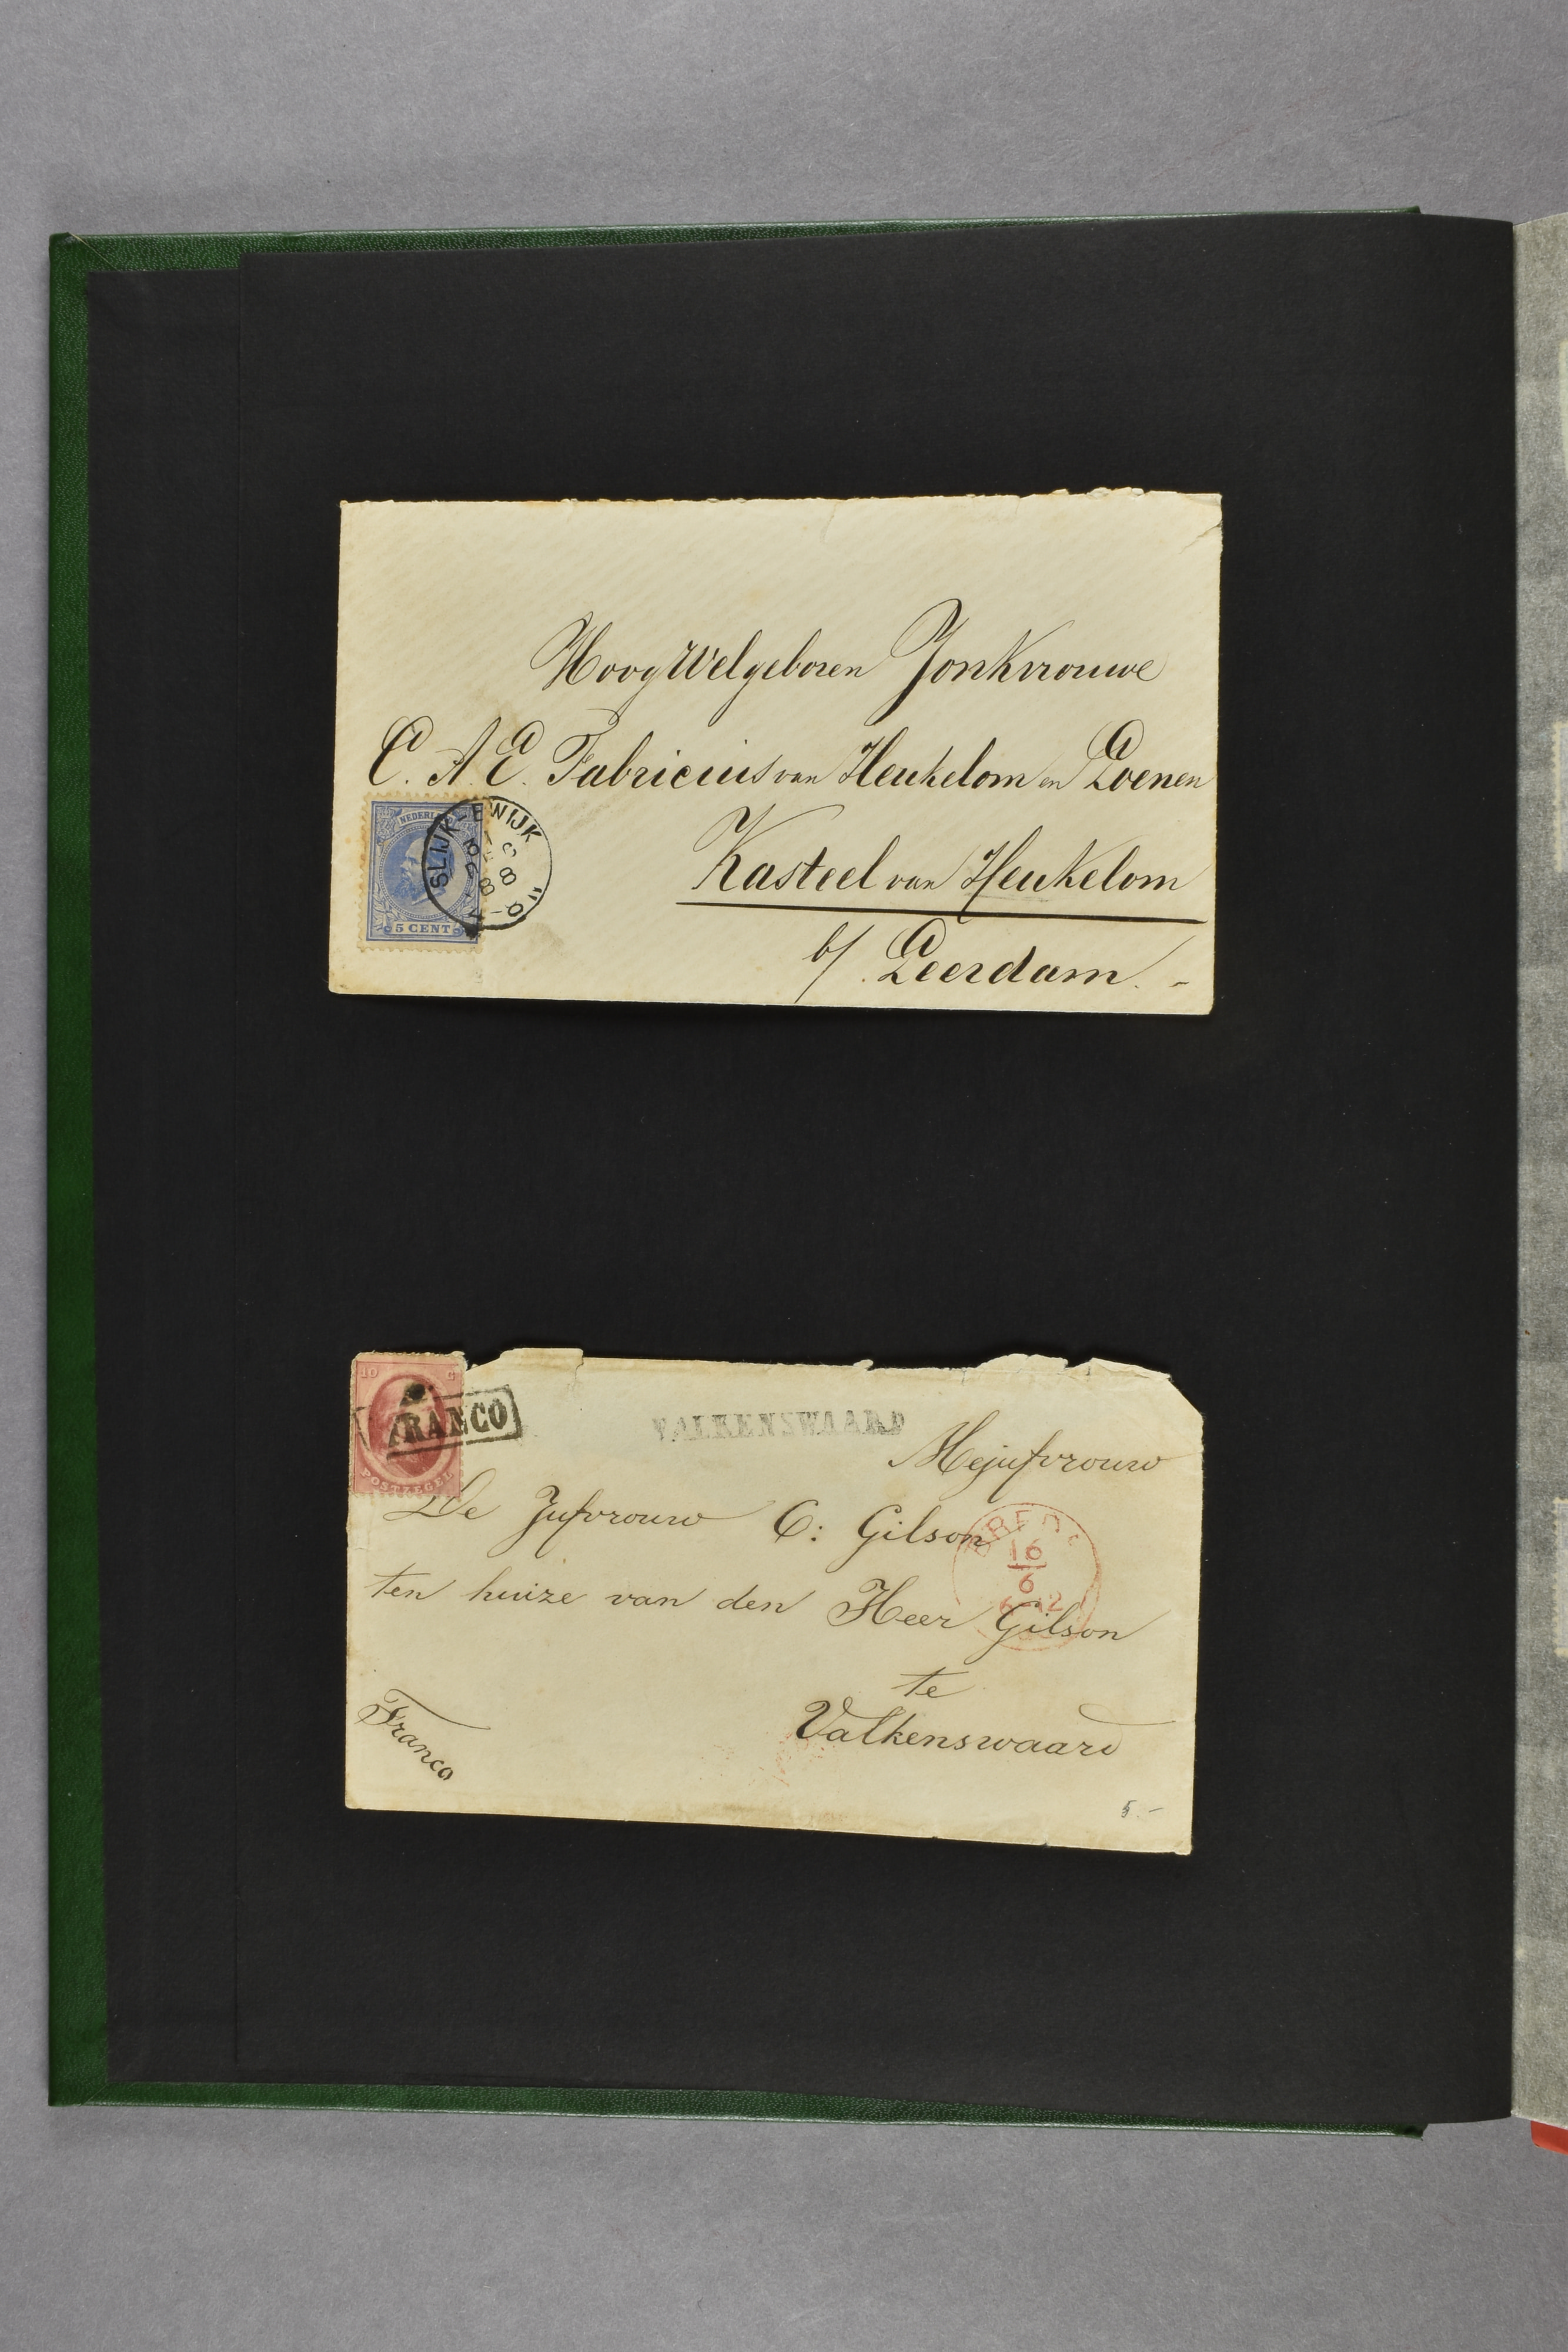 HoogWelgeboren Jonkvrouwe
C. A. E. Fabricius van Heukelom en Loenen
Kasteel van Heukelom
b/ Leerdam. -
NEDERL
5 CENT
SLIJK-EWIJK
88
10 C
POSTZEGEL
FRANCO
VALKENSWAARD
Mejufvrouw
De Jufvrouw C: Gilson
BREDA
16
6
ten huize van den Heer Gilson
te
Valkenswaard
Franco
5.-